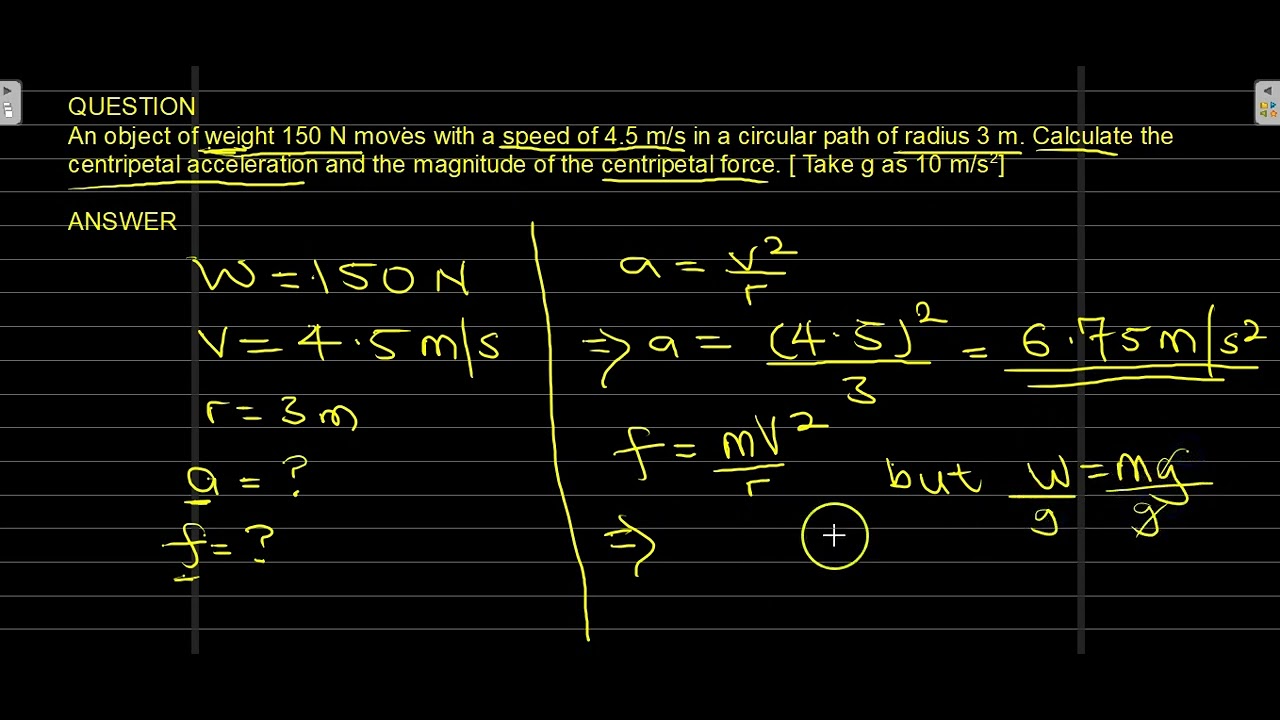 QUESTION
An object of weight 150 N moves with a speed of 4.5 m/s in a circular path of radius 3 m. Calculate the
centripetal acceleration and the magnitude of the centripetal force. [ Take g as 10 m/s²]
ANSWER
W = 150 N
V = 4.5 m/s
r = 3 m
a = ?
f = ?
a = v²/r
⇒ a = (4.5)²/3 = 6.75 m/s²
f = mv²/r but w/g = mg/g
⇒